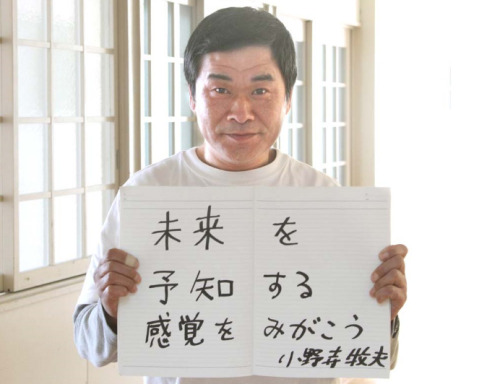 未来を
予知する
感覚をみがこう
小野寿牧夫